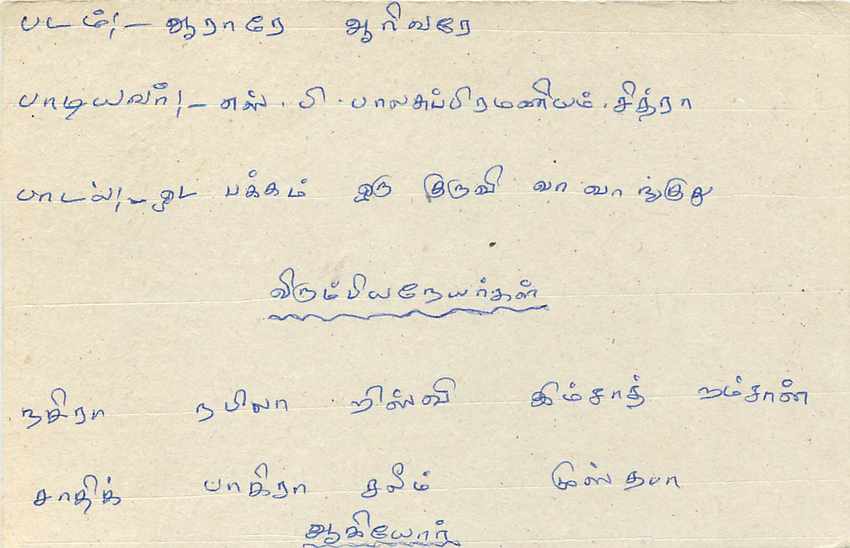 படம்:- ஆராரே ஆரிவரே
பாடியவர்:- எஸ். பி. பாலசுப்பிரமணியம். சித்ரா
பாடல்:- ஓட பக்கம் ஒரு குருவி வா வாங்குது
விரும்பியநேயர்கள்
நசிரா நபிலா றிஸ்வி இம்சாத் றம்சான்
சாதிக் பாகிரா சலீம் முஸ்தபா
ஆகியோர்